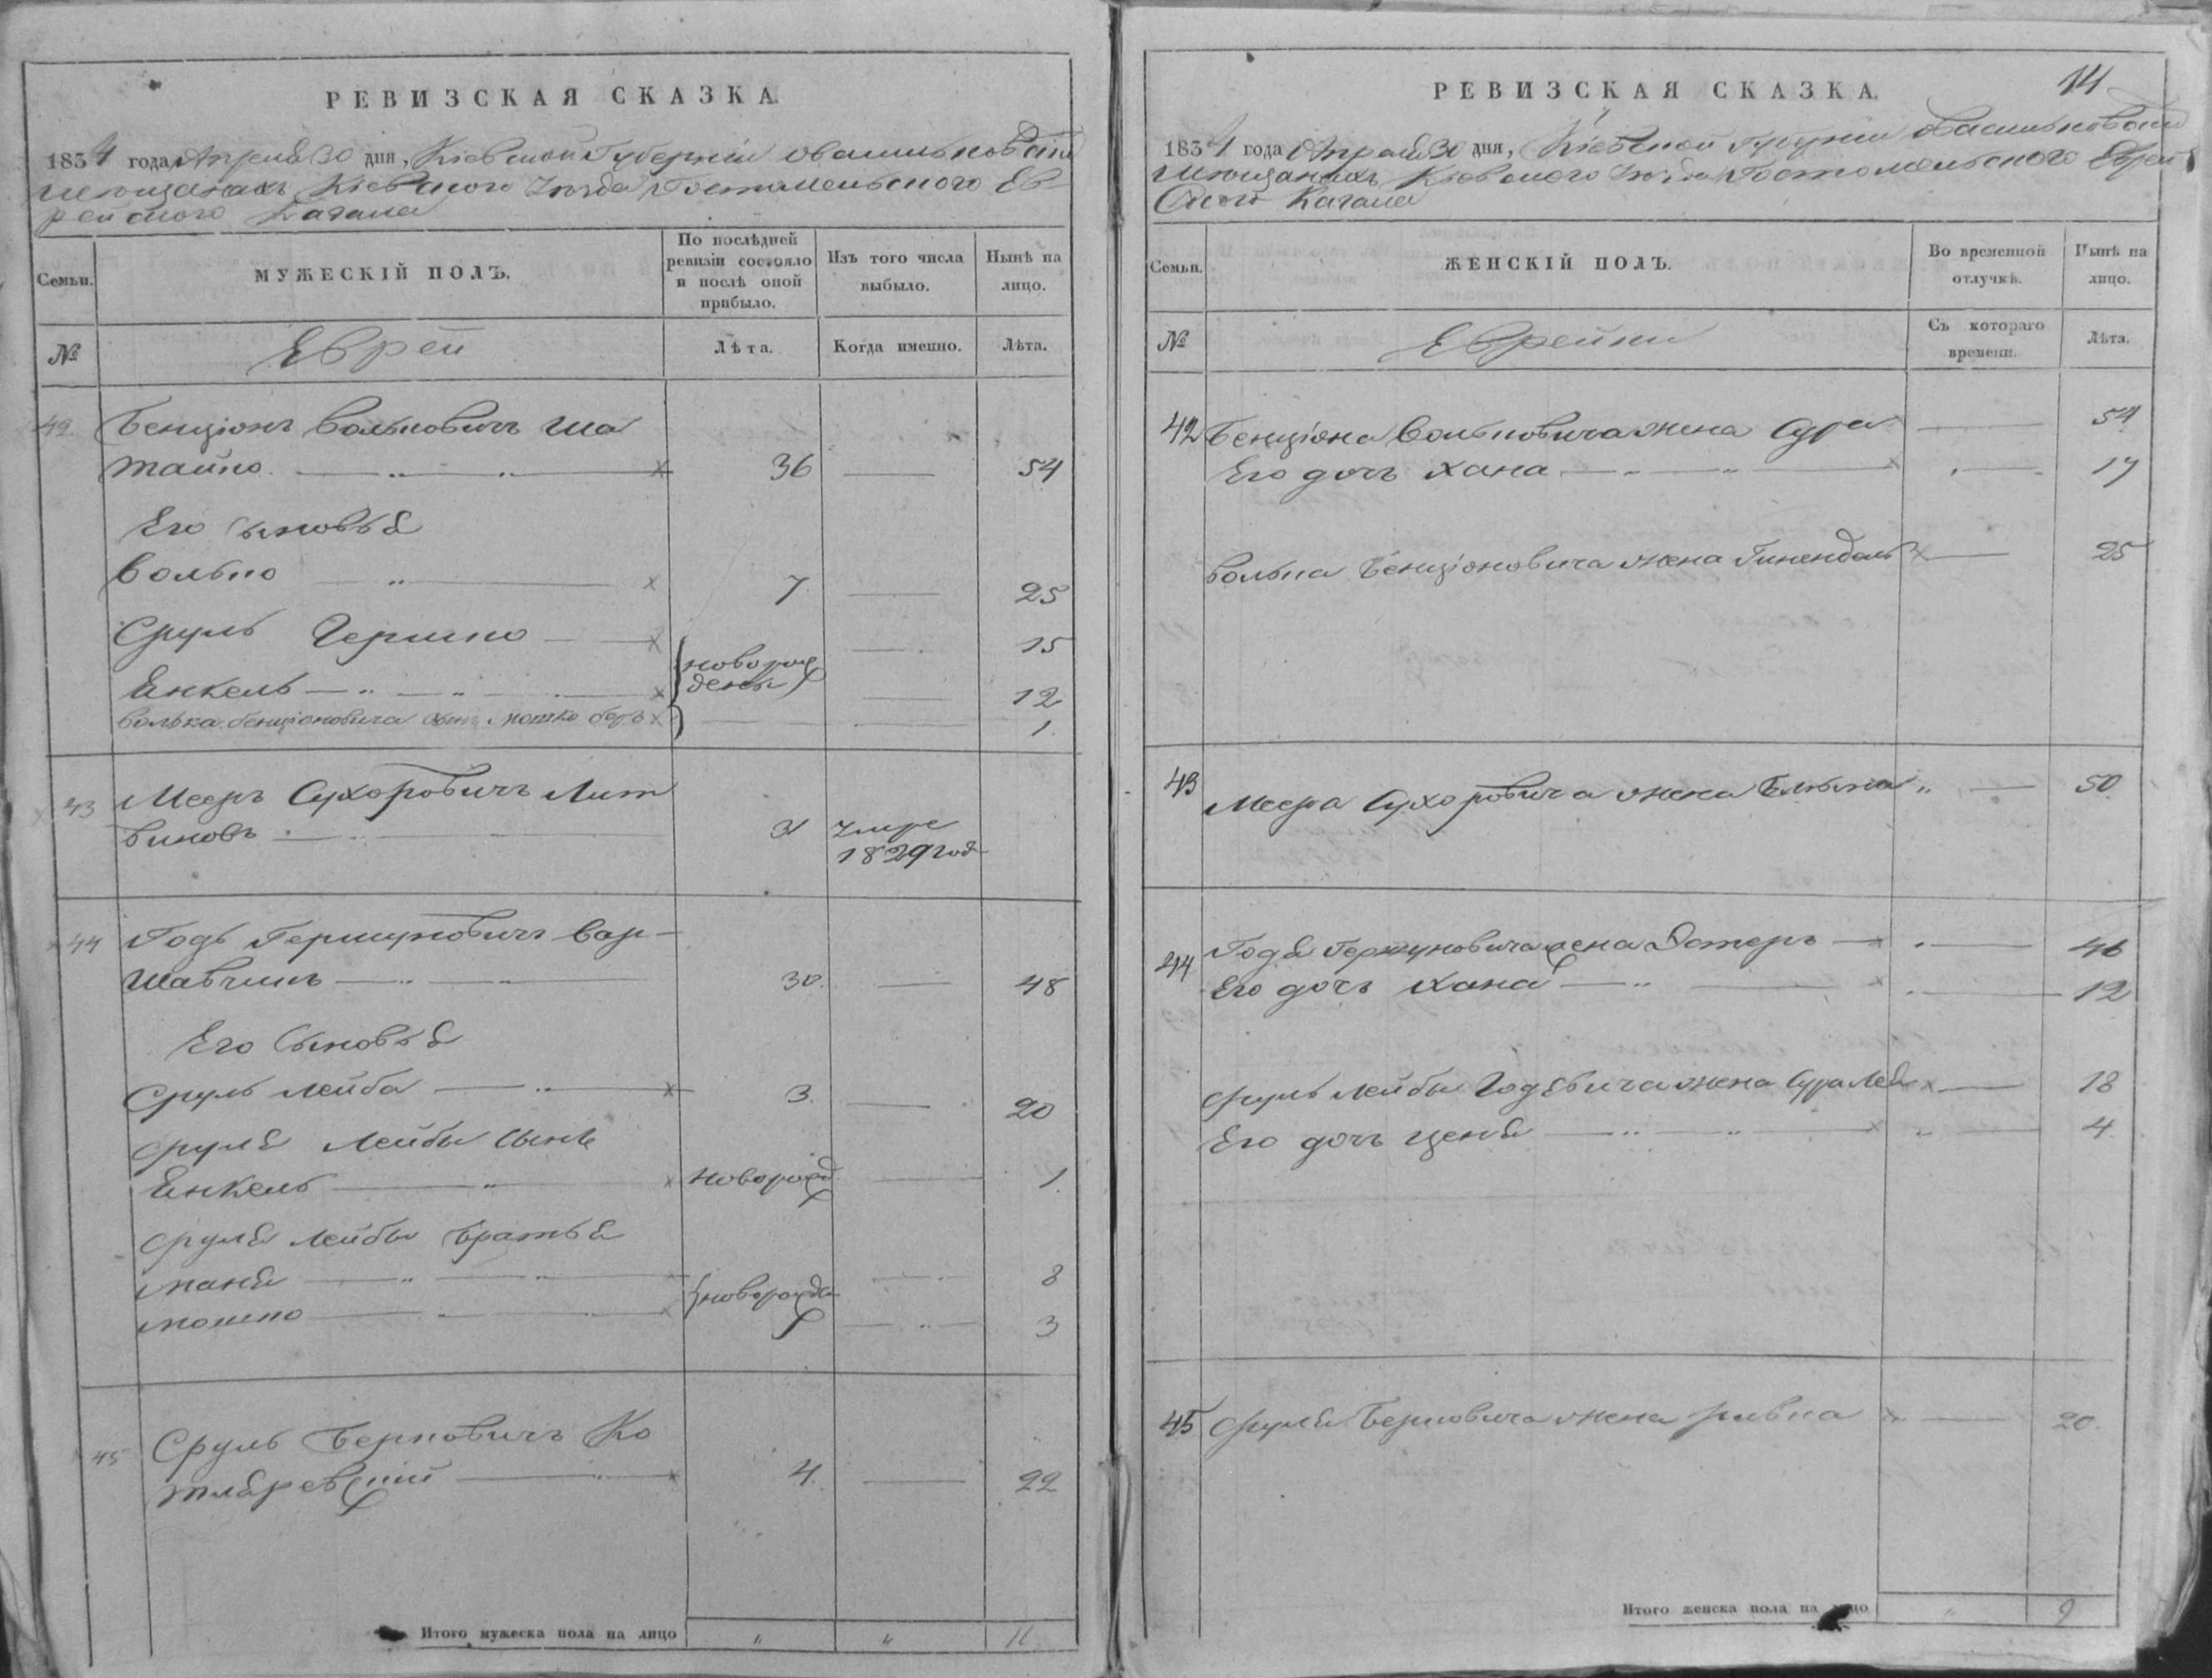 РЕВИЗСКАЯ СКАЗКА.
1834 года Апреля 30 дня, Кіевской Губерніи о васильковскихъ
мещанахъ Кіевского уезда Гостомельского Ев-
рейского Кагала
Семьи.
МУЖЕСКІЙ ПОЛЪ.
По послѣдней ревизіи состояло и послѣ оной прибыло.
Изъ того числа выбыло.
Нынѣ на лицо.
№
Евреи
Лѣта.
Когда именно.
Лѣта.
42 Бенціонъ Вольковичъ Ша
тайло 36 54
Его сыновья
Волько 7 25
Сруль Гершко 15
новорож
дены
Енкель 12
Волька Бенціоновича сынъ Мошко 1
43 Мееръ Сухоровичъ Лит
виновъ 31 умре
1829 год
44 Годь Гершуновичъ Вар-
шавчикъ 30 48
Его сыновья
Сруль Лейба 3 20
Сруля Лейбы сынъ
Енкель новорожд 1
Сруля Лейбы братья
Маня 8
новорожде
Мошко 3
45 Сруль Берковичъ Ко
тляревский 4 22
Итого мужеска пола на лицо " " 11
14
РЕВИЗСКАЯ СКАЗКА.
1834 года Апреля 30 дня, Кіевской Губерніи о васильковскихъ
мещанахъ Кіевского уезда Гостомельского Еврей
ского Кагала
Семьи.
ЖЕНСКІЙ ПОЛЪ.
Во временной отлучкѣ.
Нынѣ на лицо.
№
Еврейки
Съ котораго времени.
Лѣта.
42 Бенціона Вольковича жена Сура 54
Его дочь Хана 17
Волька Бенціоновича жена 25
43 Меера Сухоровича жена 50
44 Годя Гершуновича жена Эстеръ 46
Его дочь Хана 12
Сруль Лейбы Годевича жена Сура Лея 18
Его дочь Ценя 4
45 Сруля Берковича жена Ривка 20
Итого женска пола на лицо " 9